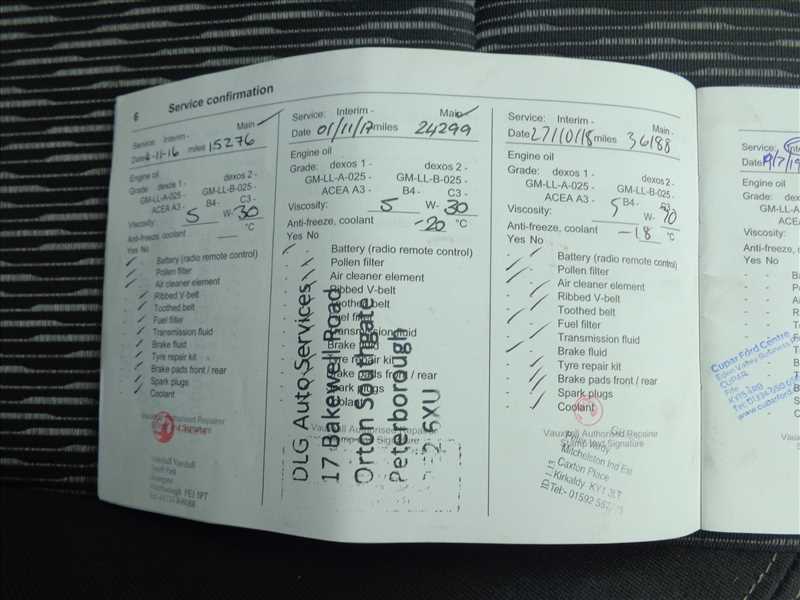 6 Service confirmation
Service: Interim - Main -
Date -11-16 miles 15276
Engine oil
Grade: dexos 1 - dexos 2 -
GM-LL-A-025 - GM-LL-B-025 -
ACEA A3 - B4 - C3 -
Viscosity: 5 W- 30
Anti-freeze, coolant °C
Yes No
Battery (radio remote control)
Pollen filter
Air cleaner element
Ribbed V-belt
Toothed belt
Fuel filter
Transmission fluid
Brake fluid
Tyre repair kit
Brake pads front / rear
Spark plugs
Coolant
Vauxhall Authorised Repairer
Vauxhall
Service: Interim - Main
Date 01/11/17 miles 24299
Engine oil
Grade: dexos 1 - dexos 2 -
GM-LL-A-025 - GM-LL-B-025 -
ACEA A3 - B4 - C3 -
Viscosity: 5 W- 30
Anti-freeze, coolant -20 °C
Yes No
Battery (radio remote control)
Pollen filter
Air cleaner element
Ribbed V-belt
Toothed belt
Fuel filter
Transmission fluid
Brake fluid
Tyre repair kit
Brake pads front / rear
Spark plugs
Coolant
Vauxhall Authorised Repairer
Stamp and Signature
DLG Auto Services
17 Bakewell Road
Orton Southgate
Peterborough
6XU
Service: Interim - Main -
Date 27/10/18 miles 36188
Engine oil
Grade: dexos 1 - dexos 2 -
GM-LL-A-025 - GM-LL-B-025 -
ACEA A3 - B4 - C3 -
Viscosity: 5 W-
Anti-freeze, coolant -18 °C
Yes No
Battery (radio remote control)
Pollen filter
Air cleaner element
Ribbed V-belt
Toothed belt
Fuel filter
Transmission fluid
Brake fluid
Tyre repair kit
Brake pads front / rear
Spark plugs
Coolant
Vauxhall Authorised Repairer
Stamp and Signature
Mitchelston Ind Est
Caxton Place
Kirkaldy KY1 3LT
Tel:- 01592
Service:
Date
Engine oil
Grade:
GM-LL-A-0
ACEA
Viscosity:
Anti-freeze,
Yes No
Cupar Ford Centre
Eden Valley Business
CUPAR
Fife
www.cuparfor